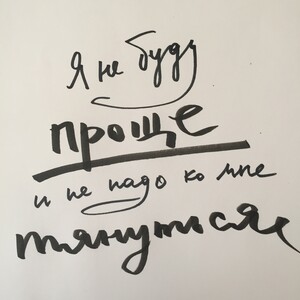 Я не буду
проще
и не надо ко мне
тянуться